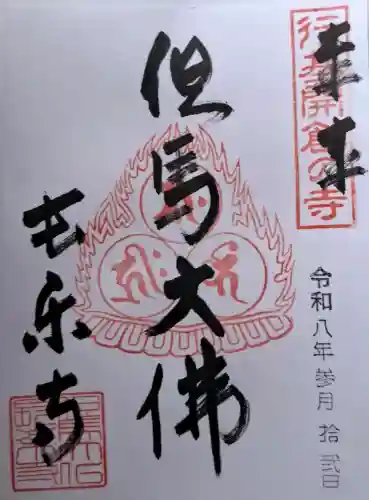 奉拝
行基開創の寺
令和八年 参月 拾 弐日
但馬大佛
長楽寺